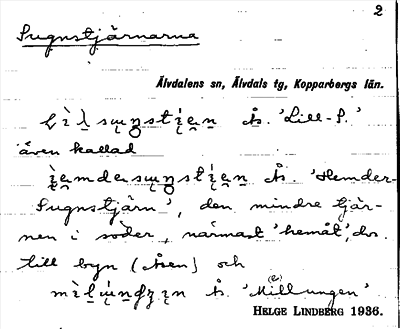 2
Sugnstjärnarna
Älvdalens sn, Älvdals tg, Kopparbergs län.
Ås. 'Lill-S.'
även kallad
Ås. 'Hemder-
Sugnstjärn', den mindre tjär-
nen i söder, närmast 'hemåt', dvs.
till byn (Åsen) och
Ås. 'Millungen'
(e)
HELGE LINDBERG 1936.